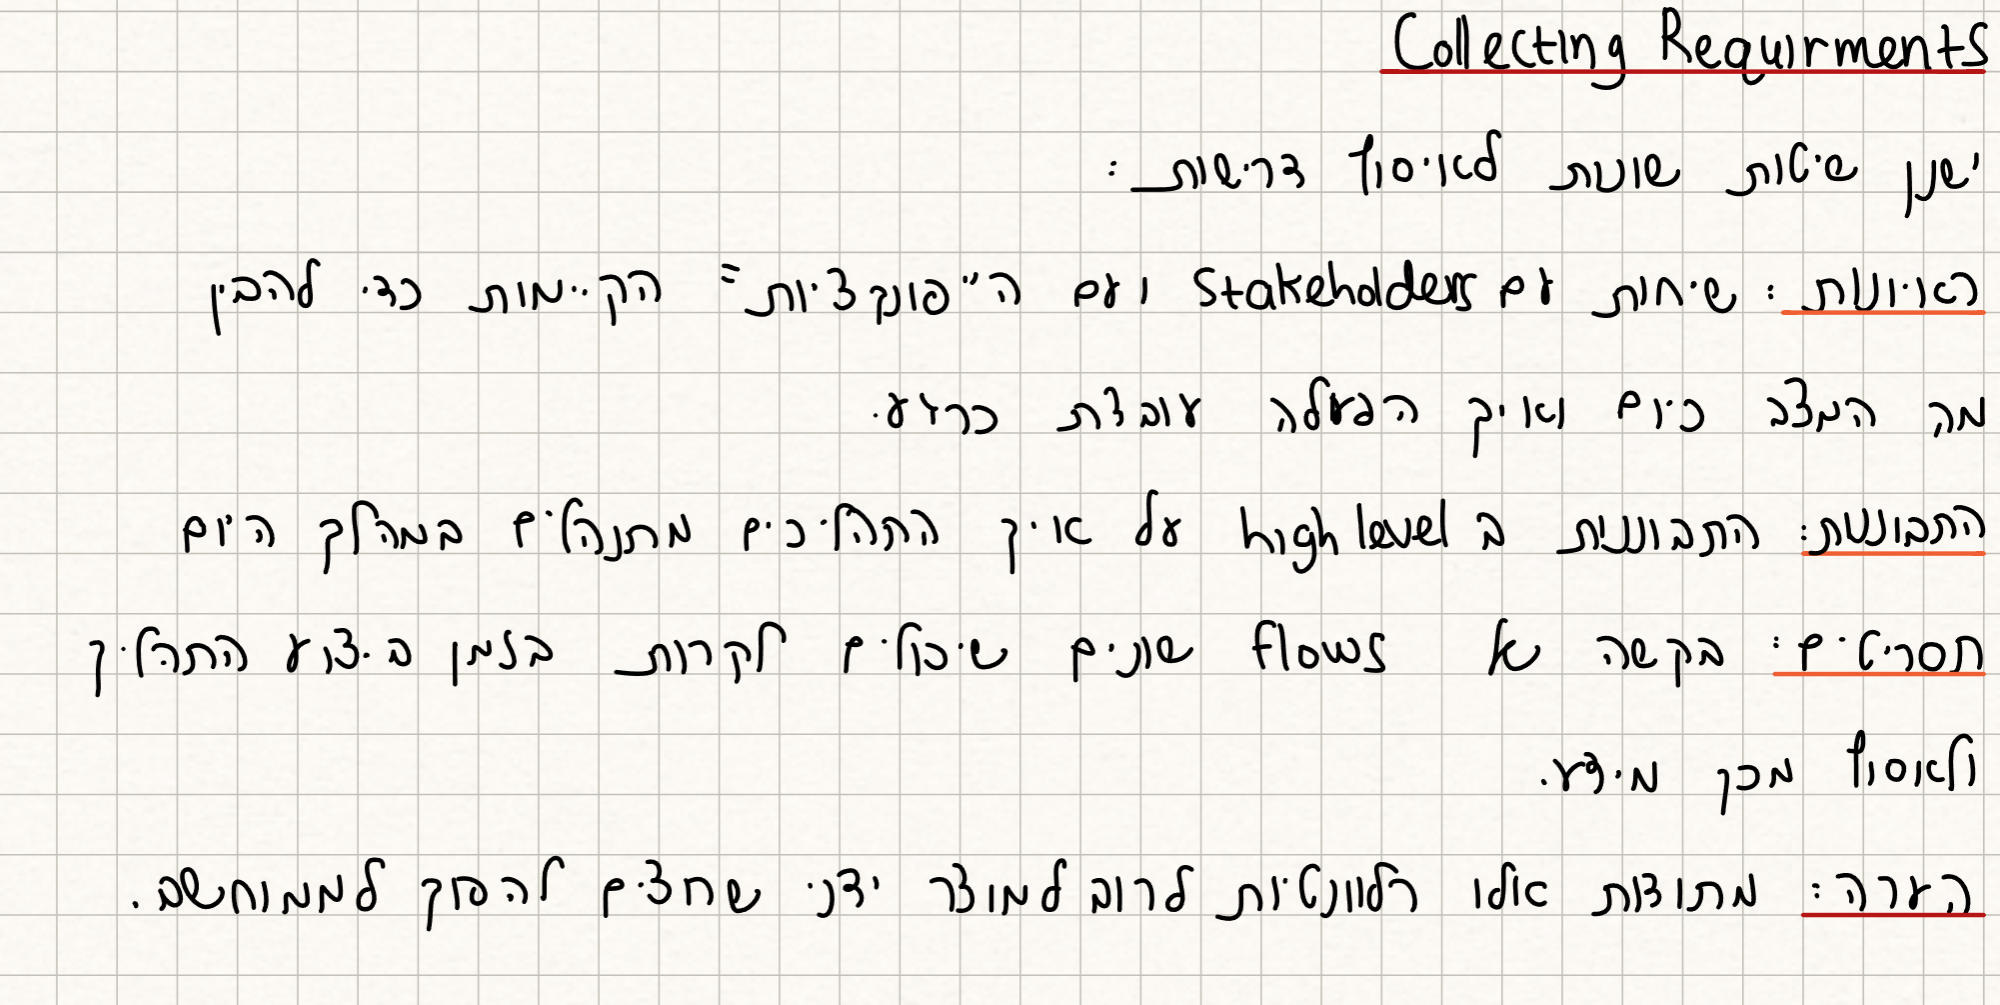 Collecting Requirments
ישנן שיטות שונות לאיסוף דרישות:
ראיונות: שיחות עם Stakeholders ועם ה"פונקציות" הקיימות כדי להבין
מה המצב כיום ואיך הפעלה עובדת כרגע.
התבוננות: התבוננית ב high level על איך התהליכים מתנהלים במהלך היום
תסריטים: בקשה flows שונים שיכולים לקרות בזמן ביצוע התהליך
ולאסוף מכך מידע.
הערה: מתודות אלו רלוונטיות לרוב למוצר ידני שרוצים להפוך לממוחשב.